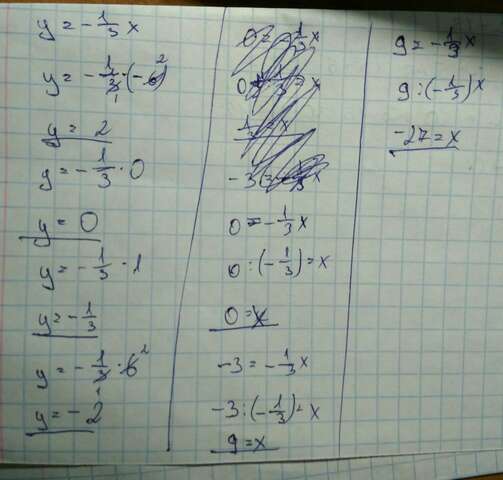 y = -1/3 x
y = -1/3 · (-6)
y = 2
y = -1/3 · 0
y = 0
y = -1/3 · 1
y = -1/3
y = -1/3 · 6
y = -2
0 = -1/3 x
0 : (-1/3) = x
0 = x
-3 = -1/3 x
-3 : (-1/3) = x
9 = x
9 = -1/3 x
9 : (-1/3) x
-27 = x